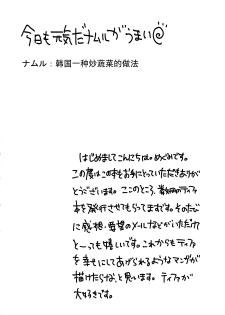 今日も元気だナムルがうまい@
ナムル：韩国一种炒蔬菜的做法
はじめましてこんにちは。めぐみです。
この度はこの本をお手にとっていただきありが
とうございます。ここのところ、番外のティファ
本を発行させてもらってますです。そのたび
に感想・要望のメールなどがいただけて
とーっても嬉しいです。これからもティファ
を幸せにしてあげられるようなマンガが
描けたらな、と思います。ティファが
大好きです。